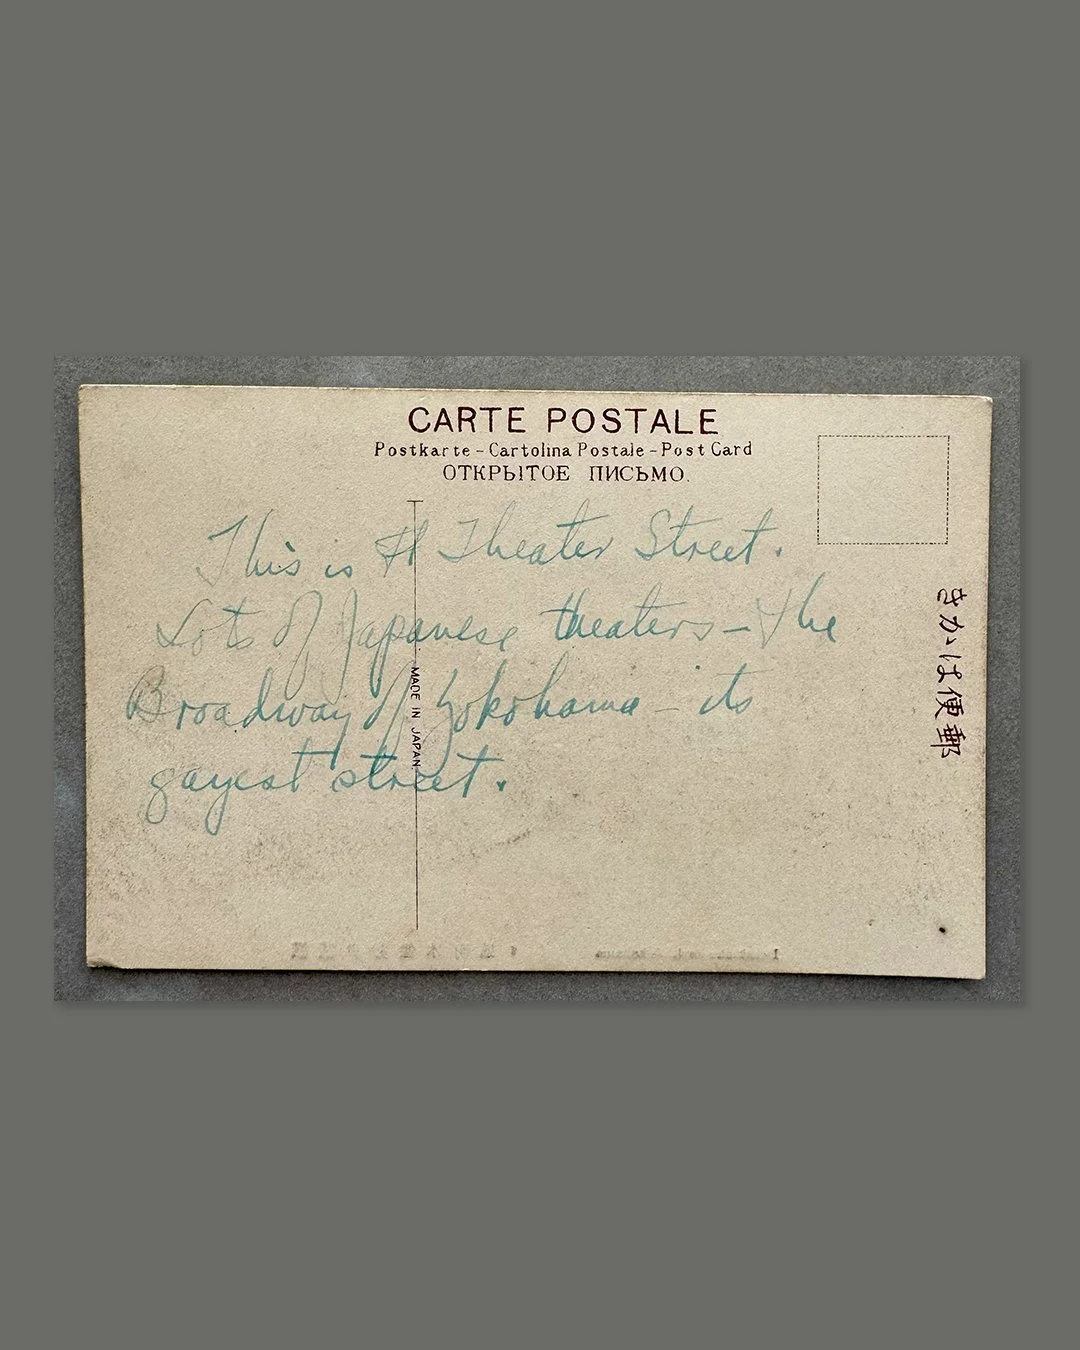 CARTE POSTALE
Postkarte - Cartolina Postale - Post Card
ОТКРЫТОЕ ПИСЬМО.
This is Theater Street.
Lots of Japanese theaters - the
Broadway of Yokohama - its
gayest street.
MADE IN JAPAN
きかは便郵